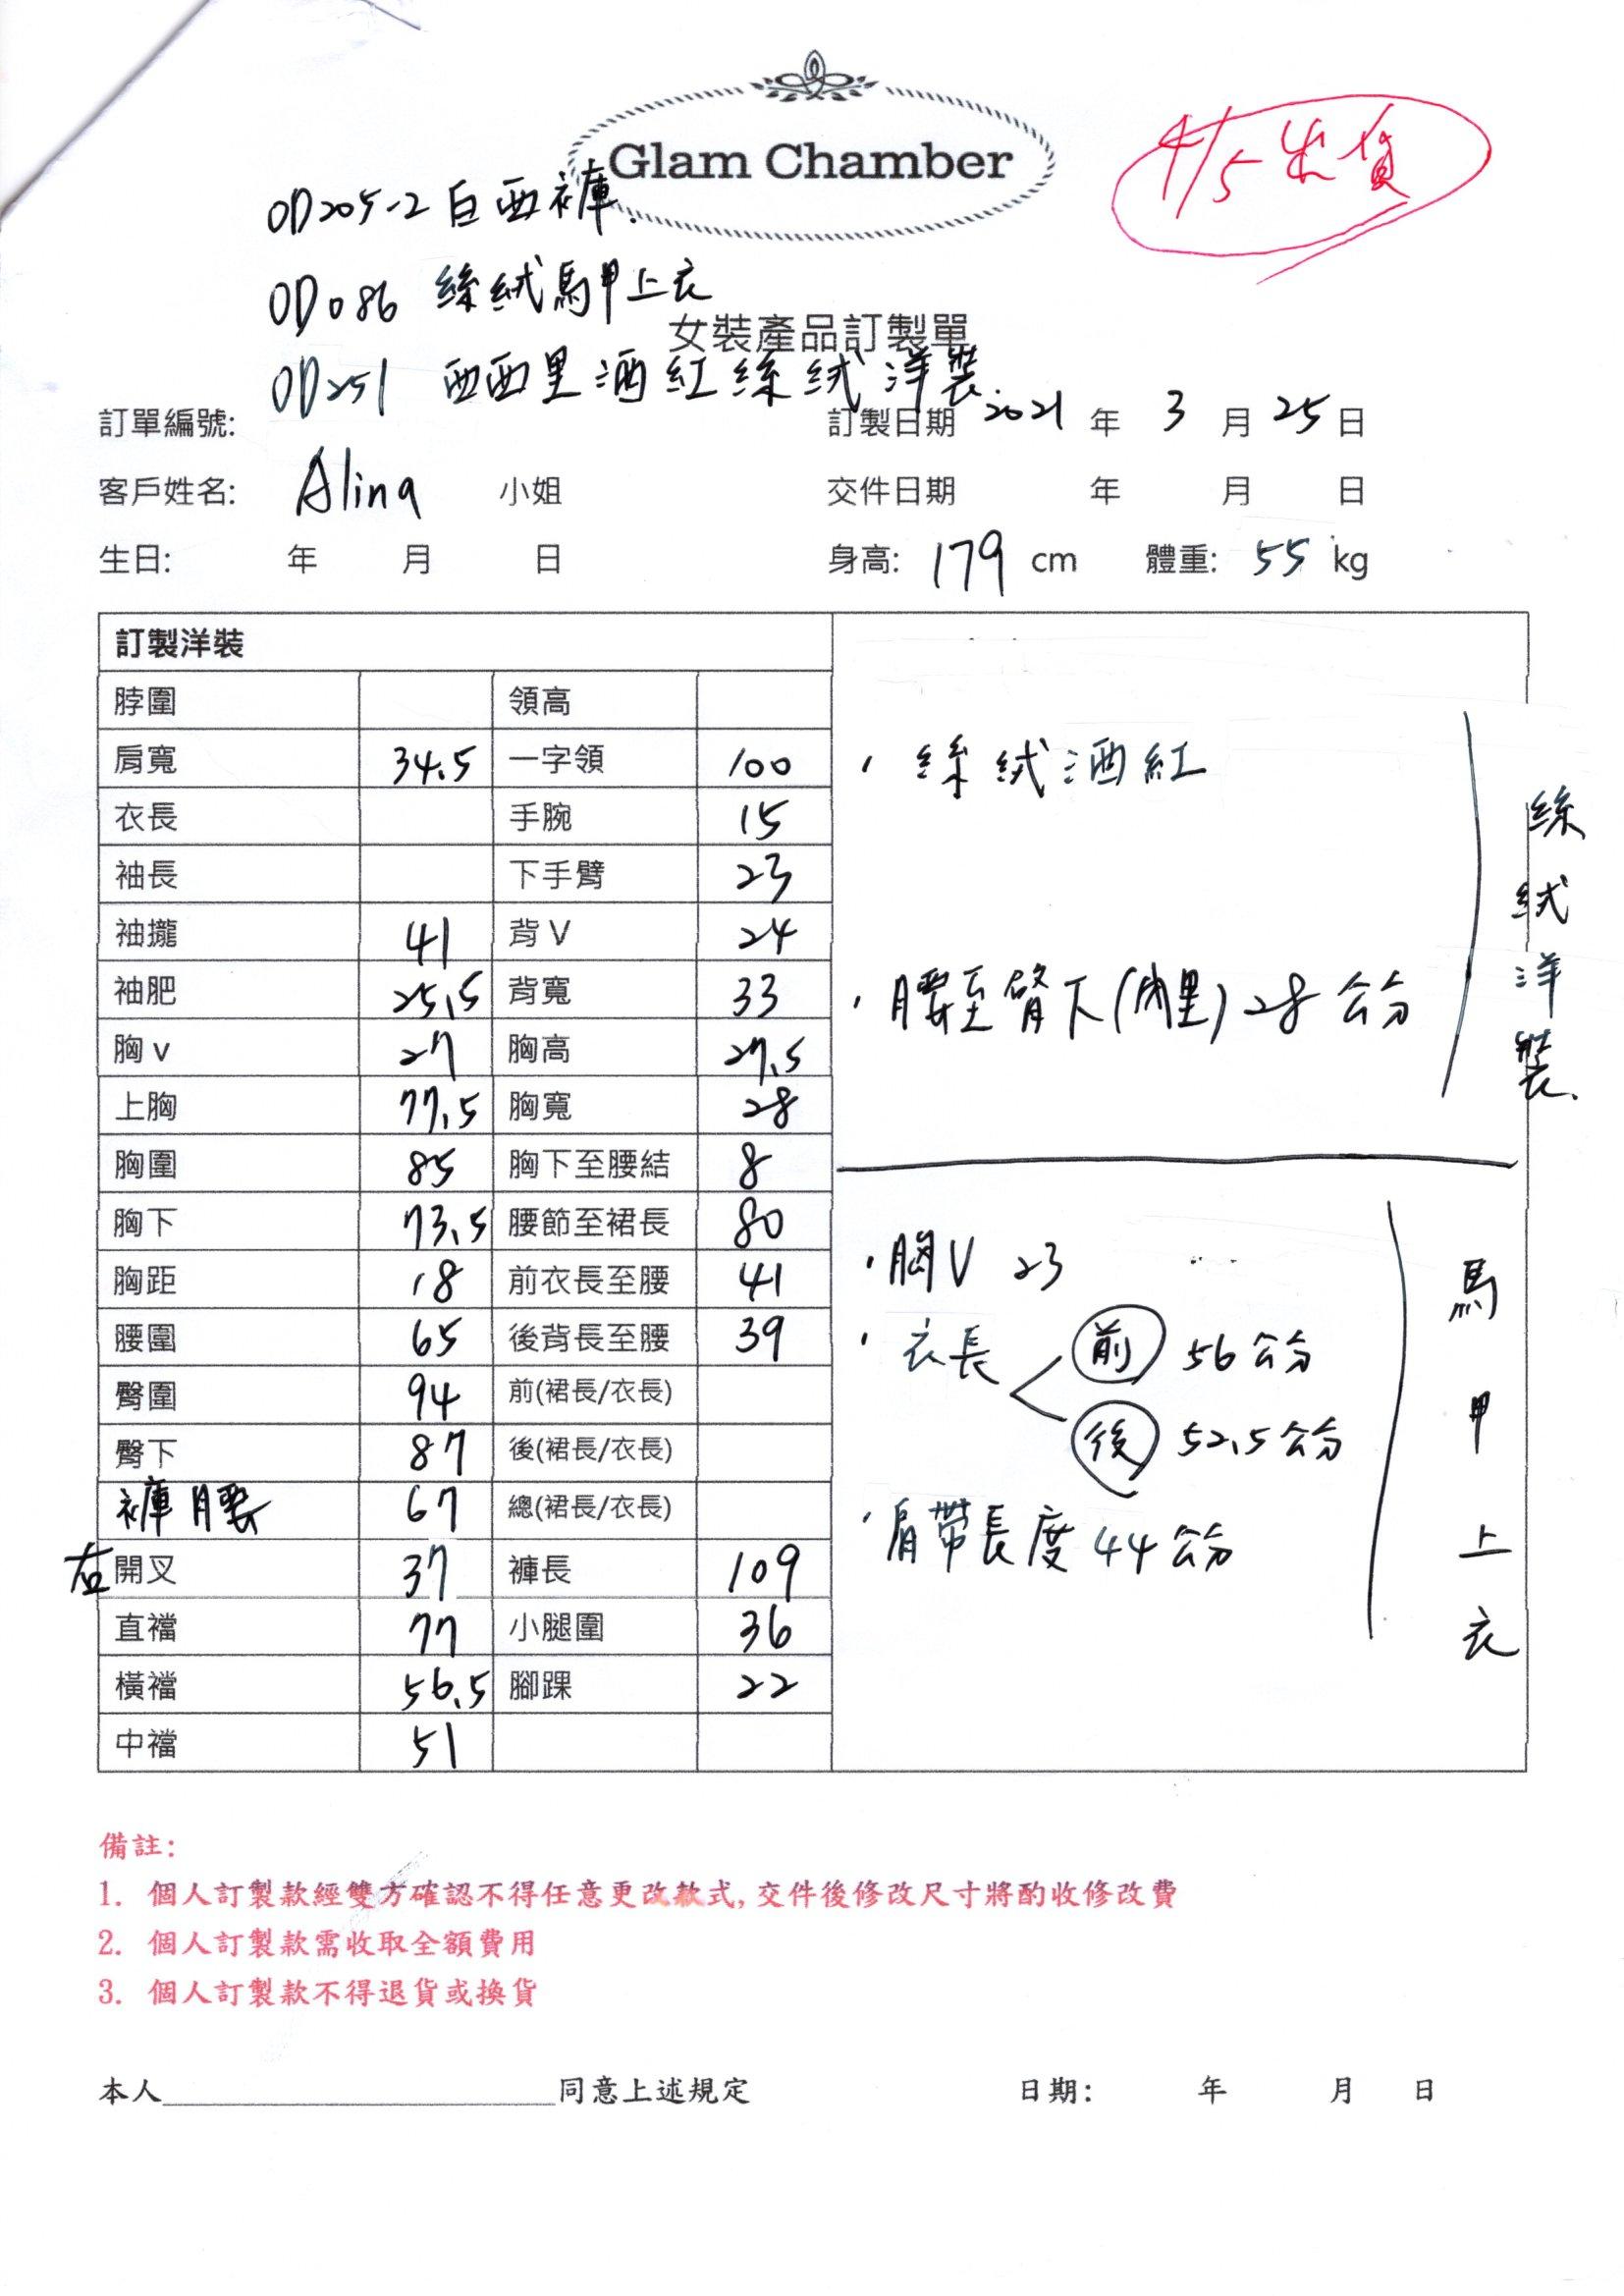 Glam Chamber
4/5出貨
OD205-2 白西褲.
OD086 絲絨馬甲上衣
女裝產品訂製單
OD251 西西里酒紅絲絨洋裝
訂單編號: 訂製日期 2021 年 3 月 25 日
客戶姓名: Alina 小姐 交件日期 年 月 日
生日: 年 月 日 身高: 179 cm 體重: 55 kg
訂製洋裝
脖圍 領高
肩寬 34.5 一字領 100
衣長 手腕 15
袖長 下手臂 23
袖攏 41 背 V 24
袖肥 25.5 背寬 33
胸 v 27 胸高 27.5
上胸 77.5 胸寬 28
胸圍 85 胸下至腰結 8
胸下 73.5 腰節至裙長 80
胸距 18 前衣長至腰 41
腰圍 65 後背長至腰 39
臀圍 94 前(裙長/衣長)
臀下 87 後(裙長/衣長)
褲腰 67 總(裙長/衣長)
右 開叉 37 褲長 109
直襠 77 小腿圍 36
橫襠 56.5 腳踝 22
中襠 51
· 絲絨酒紅
· 腰至臀下(內里) 28 公分
絲絨洋裝.
· 胸V 23
· 衣長 前 56 公分
後 52.5 公分
· 肩帶長度 44 公分
馬甲上衣
備註:
1. 個人訂製款經雙方確認不得任意更改款式, 交件後修改尺寸將酌收修改費
2. 個人訂製款需收取全額費用
3. 個人訂製款不得退貨或換貨
本人________________同意上述規定 日期: 年 月 日